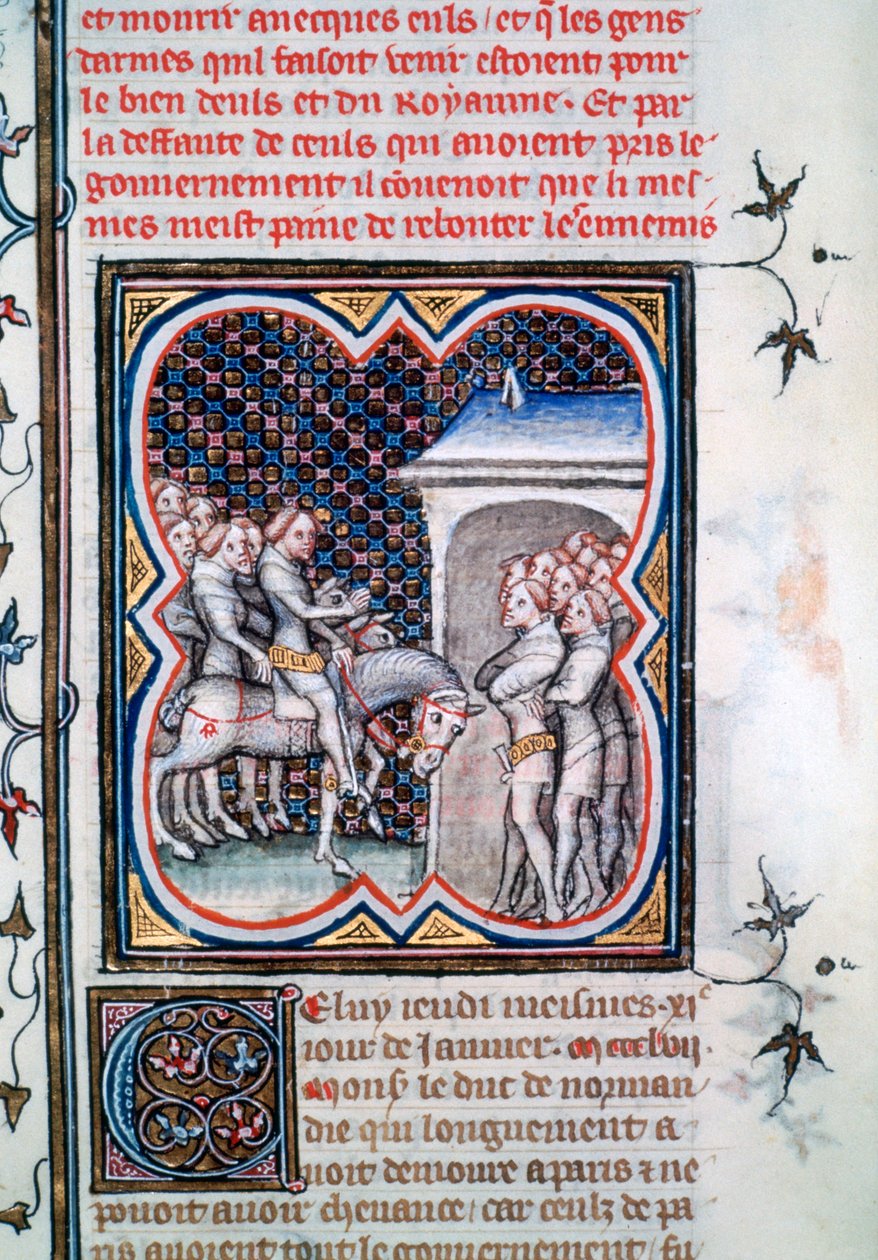 et mourir auecques euls / et q̃ les gens
darmes quil faisoit venir estoient pour
le bien deuls et du Royaume. Et par
la deffaute de ceuls qui auoient pris le
gouuernement il cõuenoit que li mes
mes meist paine de rebouter les ennemis
Celuy ieudi meismes . xiᵉ
iour de Januier . m ccc lvii .
Monsʳ le duc de norman
die qui longuement a
uoit demoure a paris ⁊ ne
pouoit auoir cheuance / car ceulz de pa
ris auoient tout le gouuernement / fu